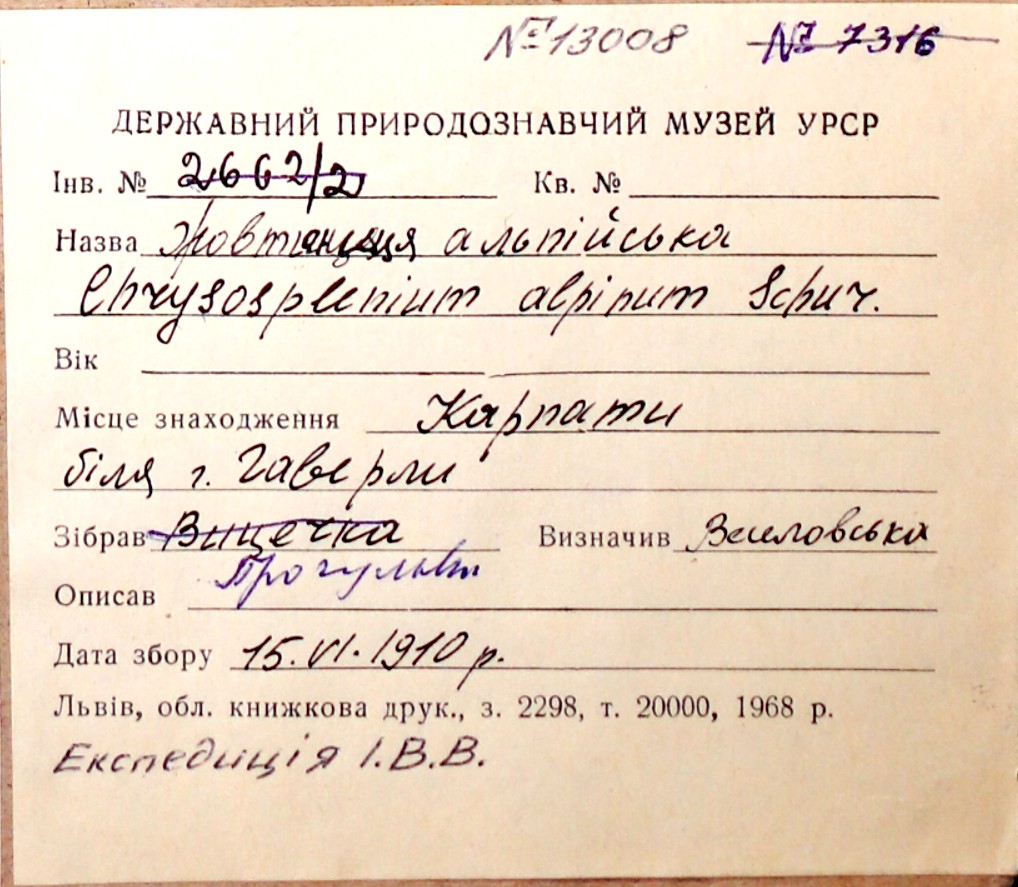 № 13008 № 7316
ДЕРЖАВНИЙ ПРИРОДОЗНАВЧИЙ МУЗЕЙ УРСР
Інв. № 2662/2 Кв. №
Назва Жовтяниця альпійська
Chrysosplenium alpinum Schur.
Вік
Місце знаходження Карпати
біля г. Говерли
Зібрав Визначив
Описав
Дата збору 15.VI.1910 р.
Львів, обл. книжкова друк., з. 2298, т. 20000, 1968 р.
Експедиція І.В.В.